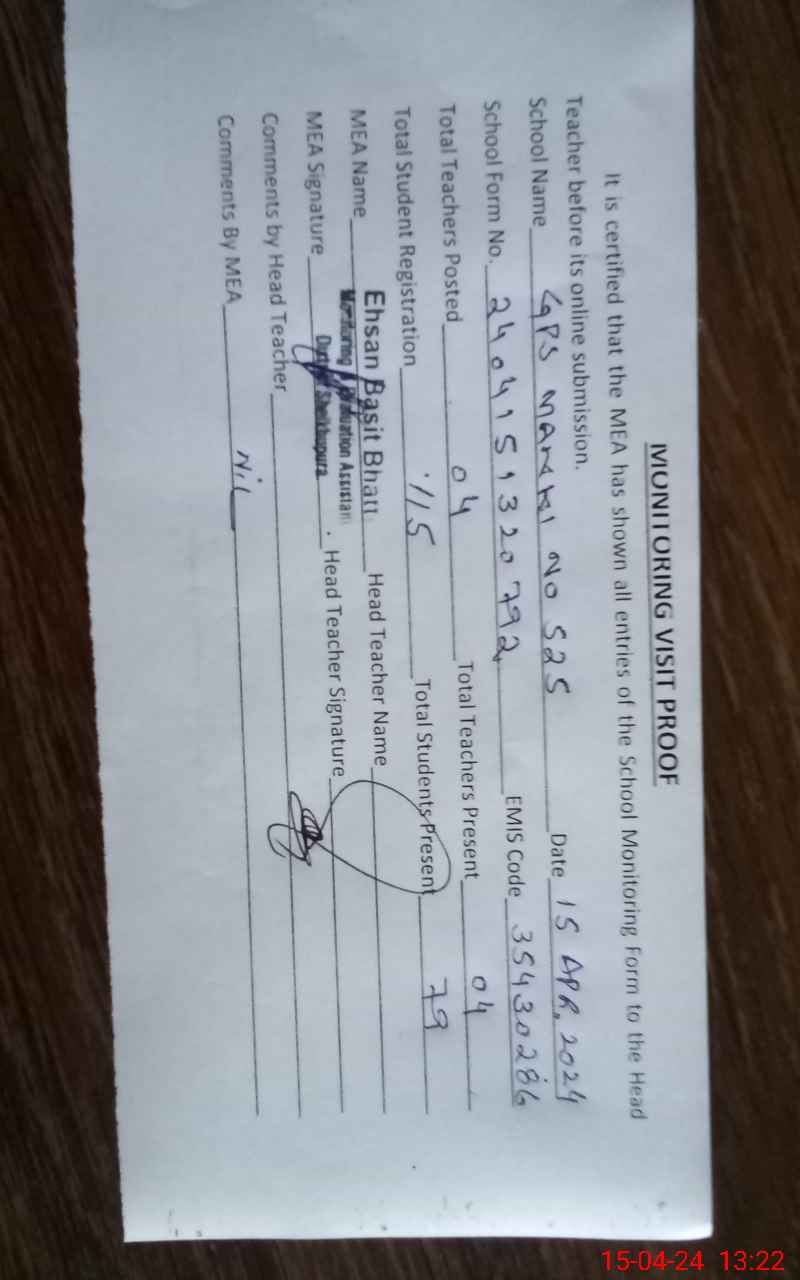 MONITORING VISIT PROOF
It is certified that the MEA has shown all entries of the School Monitoring Form to the Head
Teacher before its online submission.
School Name GPS MANKI NO 525 Date 15 APR. 2024
School Form No. 2404151320792 EMIS Code 35430286
Total Teachers Posted 04 Total Teachers Present 04
Total Student Registration 115 Total Students Present 79
MEA Name Ehsan Basit Bhatti Head Teacher Name
Monitoring & Evaluation Assistant
MEA Signature Sheikhupura Head Teacher Signature
Comments by Head Teacher
Comments By MEA Nil
15-04-24 13:22